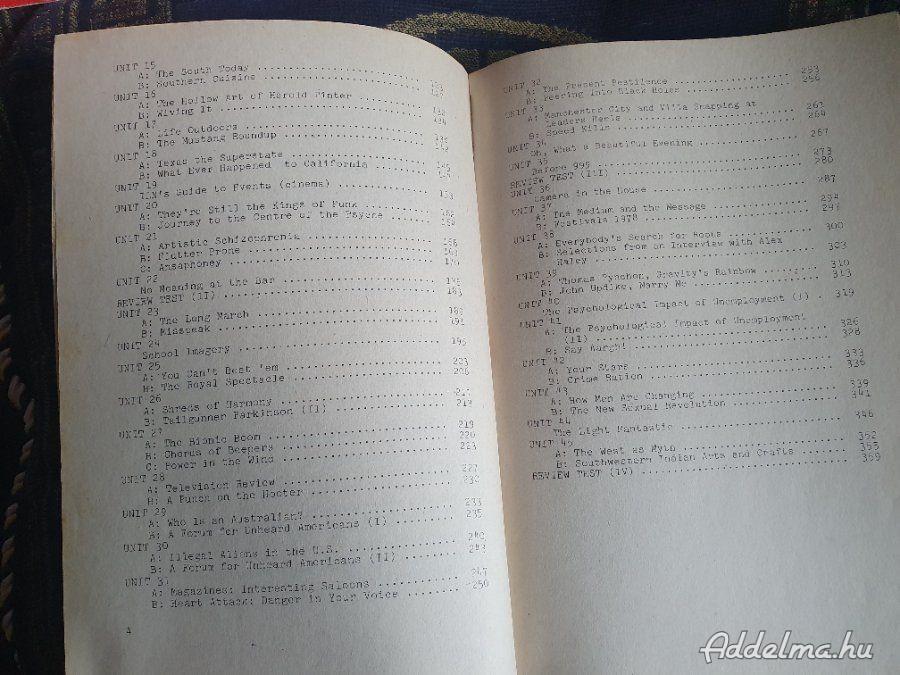 UNIT 15
A: The South Today
B: Southern Cuisine
UNIT 16
A: The Hollow Art of Harold Pinter
B: Wiving It
UNIT 17
A: Life Outdoors
B: The Mustang Roundup
UNIT 18
A: Texas the Superstate
B: What Ever Happened to California
UNIT 19
Guide to Events (cinema)
UNIT 20
A: They're Still the Kings of Funk
B: Journey to the Centre of the Psyche
UNIT 21
A: Artistic Schizophrenia
B: Flutter Prone
C: Ansaphoney
UNIT 22
No Moaning at the Bar
REVIEW TEST (II) 183
UNIT 23
A: The Long March
B: Misspeak
UNIT 24
School Imagery 195
UNIT 25
A: You Can't Beat 'em 203
B: The Royal Spectacle 206
UNIT 26
A: Shreds of Harmony
B: Tailgunner Parkinson (II)
UNIT 27
A: The Bionic Boom 219
B: Chorus of Beepers 220
C: Power in the Wind 223
UNIT 28
A: Television Review 227
B: A Punch on the Hooter 230
UNIT 29
A: Who Is an Australian? 233
B: A Forum for Unheard Americans (I) 235
UNIT 30
A: Illegal Aliens in the U.S. 240
B: A Forum for Unheard Americans (II) 243
UNIT 31
A: Magazines: Interesting Saloons 247
B: Heart Attack: Danger in Your Voice 250
4
UNIT 32
A: The Present Pestilence 253
B: Peering Into Black Holes 256
UNIT 33
A: Manchester City and Villa Snapping at
Leaders Heels 261
B: Speed Kills 264
UNIT 34
Oh, What a Beautiful Evening 267
UNIT 35
Before 999 273
REVIEW TEST (III) 280
UNIT 36
Camera in the House 287
UNIT 37
A: The Medium and the Message 294
B: Festivals 1978 297
UNIT 38
A: Everybody's Search for Roots 300
B: Selections from an Interview with Alex
Haley 303
UNIT 39
A: Thomas Pynchon, Gravity's Rainbow 310
B: John Updike, Marry Me 313
UNIT 40
The Psychological Impact of Unemployment (I) . 319
UNIT 41
A: The Psychological Impact of Unemployment
(II) 326
B: Say Aargh! 328
UNIT 42
A: Your Stars 333
B: Crime Ration 336
UNIT 43
A: How Men Are Changing 339
B: The New Sexual Revolution 341
UNIT 44
The Light Fantastic 346
UNIT 45
A: The West as Myth 352
B: Southwestern Indian Arts and Crafts 355
REVIEW TEST (IV) 359
Addelma.hu